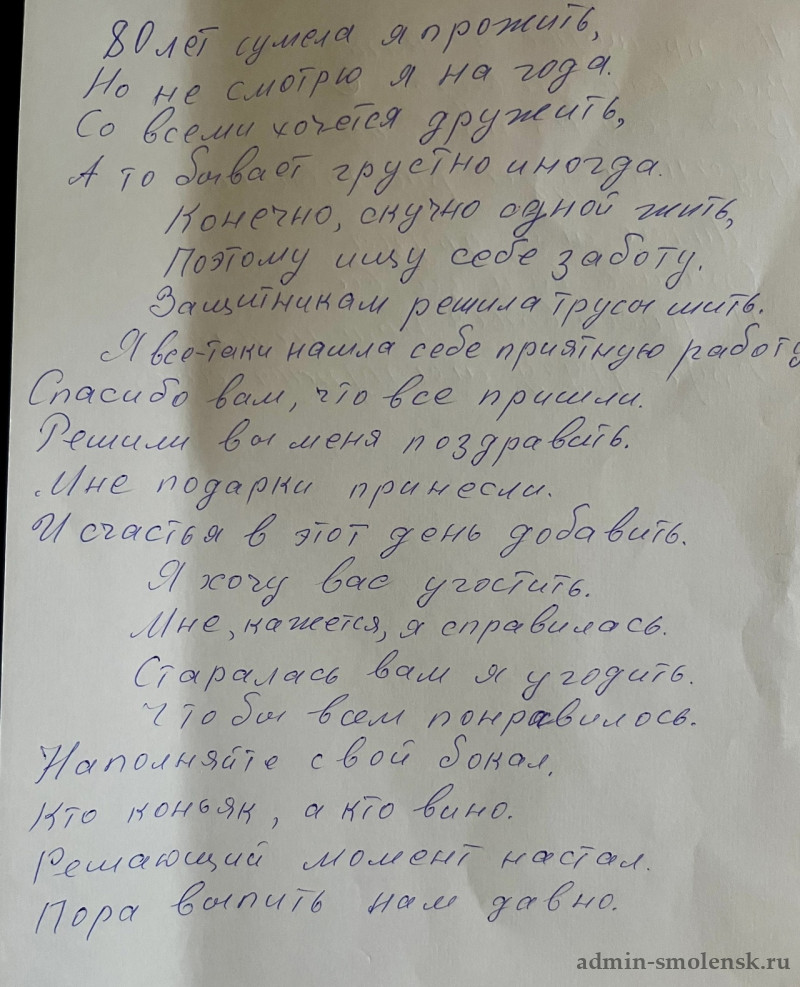 80 лет сумела я прожить,
Но не смотрю я на года.
Со всеми хочется дружить,
А то бывает грустно иногда.
Конечно, скучно одной жить,
Поэтому ищу себе заботу.
Защитникам решила трусы шить.
Я все-таки нашла себе приятную работу
Спасибо вам, что все пришли.
Решили вы меня поздравить.
Мне подарки принесли.
И счастья в этот день добавить.
Я хочу вас угостить.
Мне, кажется, я справилась.
Старалась вам я угодить.
Что бы всем понравилось.
Наполняйте свой бокал,
Кто коньяк, а кто вино.
Решающий момент настал.
Пора выпить нам давно.
admin-smolensk.ru